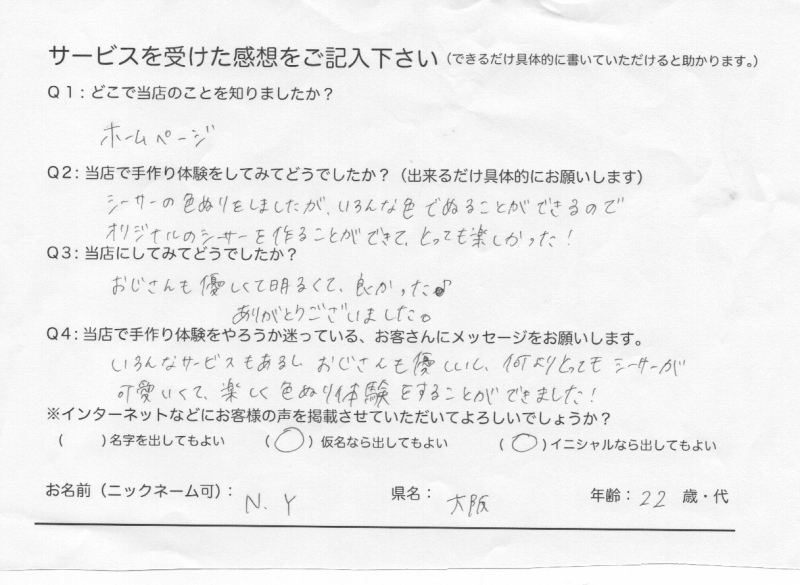 サービスを受けた感想をご記入下さい（できるだけ具体的に書いていただけると助かります。）
Q1：どこで当店のことを知りましたか？
ホームページ
Q2：当店で手作り体験をしてみてどうでしたか？（出来るだけ具体的にお願いします）
シーサーの色ぬりをしましたが、いろんな色でぬることができるので
オリジナルのシーサーを作ることができて、とっても楽しかった！
Q3：当店にしてみてどうでしたか？
おじさんも優しくて明るくて、良かった♪
ありがとうございました。
Q4：当店で手作り体験をやろうか迷っている、お客さんにメッセージをお願いします。
いろんなサービスもあるし、おじさんも優しいし、何よりとってもシーサーが
可愛いくて、楽しく色ぬり体験をすることができました！
※インターネットなどにお客様の声を掲載させていただいてよろしいでしょうか？
（　）名字を出してもよい　（○）仮名なら出してもよい　（○）イニシャルなら出してもよい
お名前（ニックネーム可）：N.Y　県名：大阪　年齢：22 歳・代